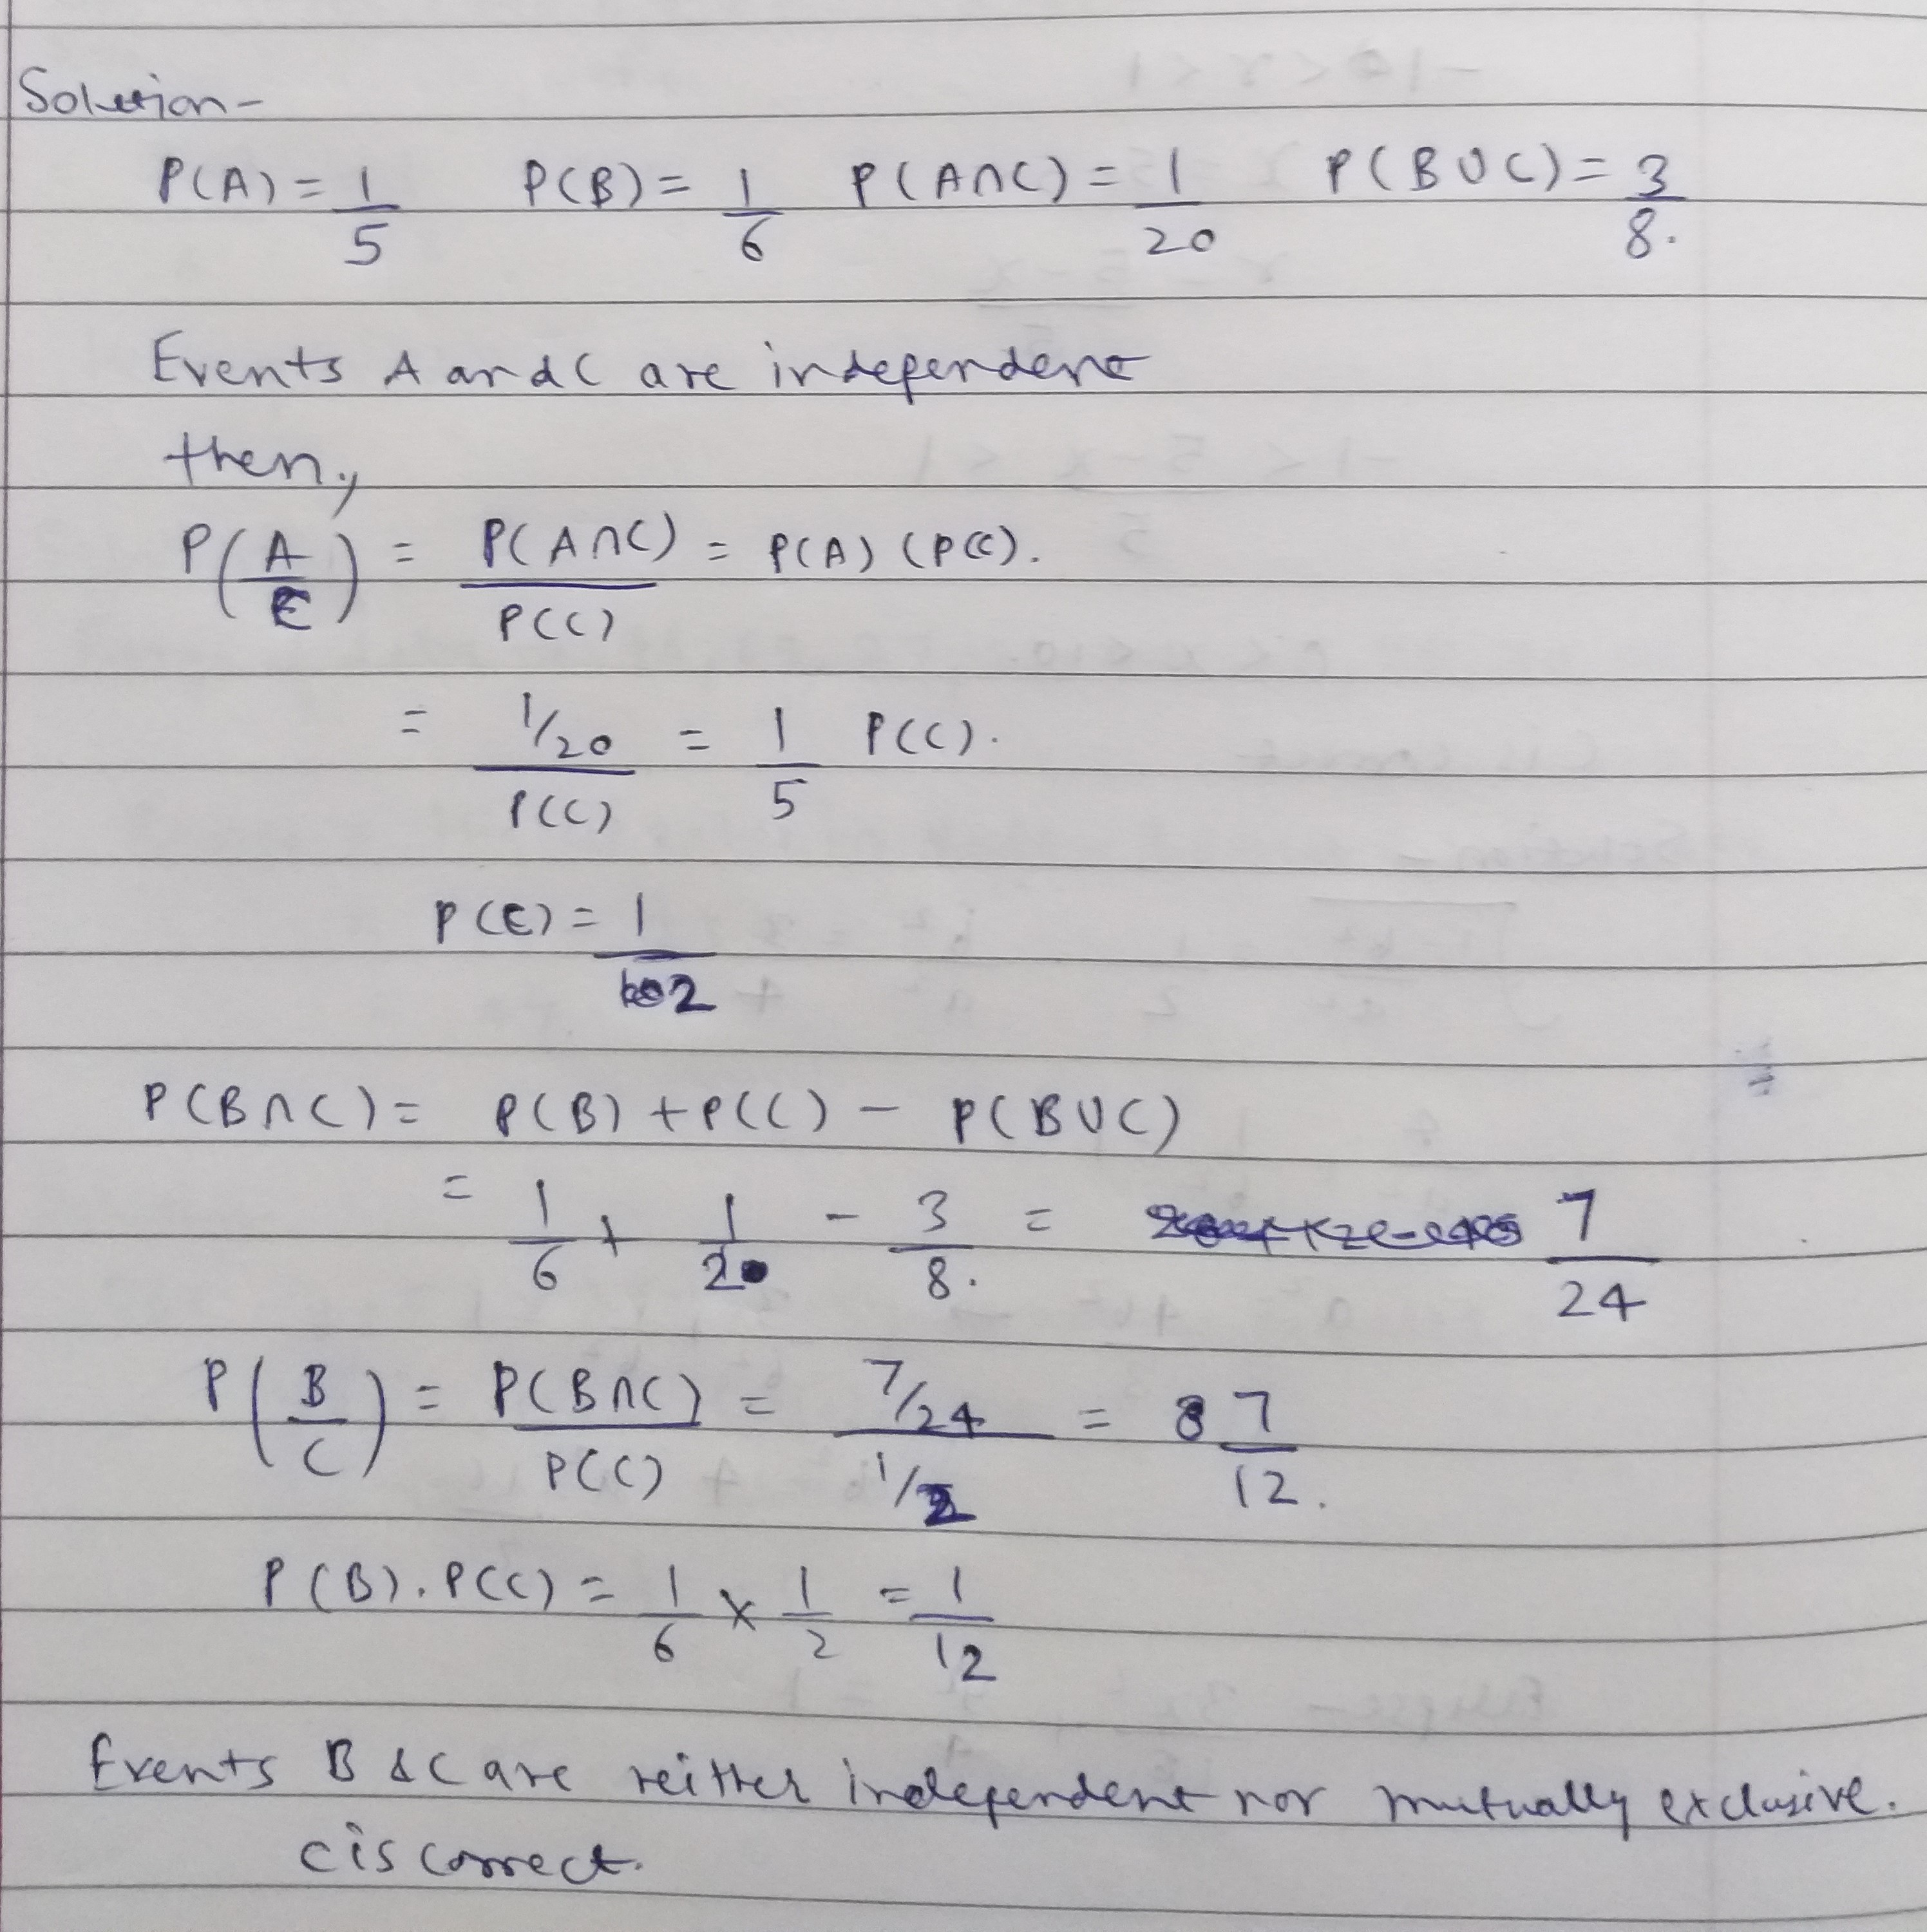 Solution-
P(A) = 1/5 P(B) = 1/6 P(A∩C) = 1/20 P(B∪C) = 3/8.
Events A and C are independent
then,
P(A/C) = P(A∩C)/P(C) = P(A) (P(C).
= (1/20)/P(C) = 1/5 P(C).
P(C) = 1/2
P(B∩C) = P(B) + P(C) - P(B∪C)
= 1/6 + 1/2 - 3/8. = 7/24
P(B/C) = P(B∩C)/P(C) = (7/24)/(1/2) = 7/12.
P(B).P(C) = 1/6 × 1/2 = 1/12
Events B & C are neither independent nor mutually exclusive.
C is correct.